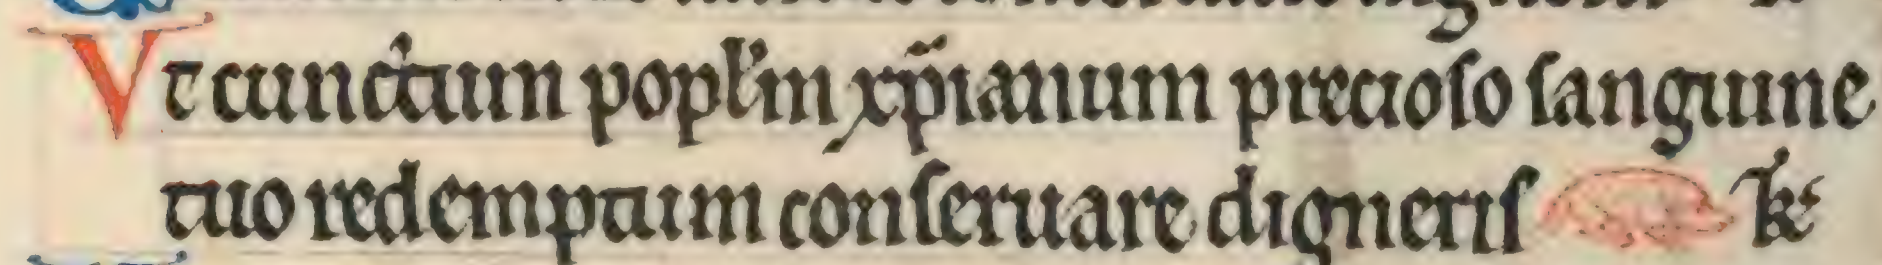 Vt cunctum popl'm xp̄ianum precioso sanguine
tuo redemptum conseruare digneris k'